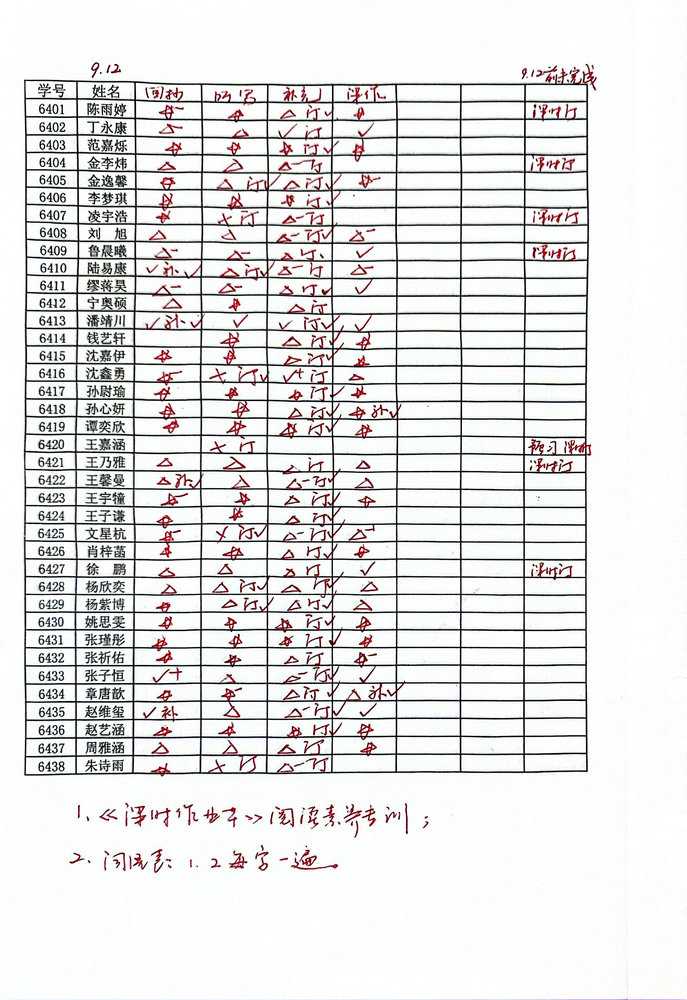 9.12 9.12前未完成
学号 姓名 回抄 听写 补充 课作
6401 陈雨婷 ☆- ☆ △订✓ ☆ 课时订
6402 丁永康 △- △ ✓订 ✓
6403 范嘉烁 ☆ ☆ ☆订✓ ☆
6404 金李炜 △ △ △-订 课时订
6405 金逸馨 ☆ △订✓ △订✓ ☆-
6406 李梦琪 ☆ ☆ ☆订✓
6407 凌宇浩 ☆ ×订 △-订 课时订
6408 刘旭 △ △ △-订✓ △-
6409 鲁晨曦 △- △- △订 ✓ 课时订
6410 陆易康 ✓补✓ △订✓ △-订 △-
6411 缪蒋昊 △- △- △订✓ ✓
6412 宁奥硕 △ ☆ △订
6413 潘靖川 ✓补✓ ✓ ✓订✓ ✓
6414 钱艺轩 ☆ △订✓ ☆
6415 沈嘉伊 ☆ ☆ △订✓ ☆
6416 沈鑫勇 ☆- ×订✓ ✓+订 △
6417 孙尉瑜 ☆ ☆ ☆订✓ ☆
6418 孙心妍 ☆ ☆ △订✓ ☆补✓
6419 谭奕欣 ☆ ☆ ☆订✓ ☆
6420 王嘉涵 ×订 预习 课时订
6421 王乃雅 △ △ △订 △ 课时订
6422 王馨曼 △补✓ △ △-订✓ △
6423 王宇橦 ☆- ☆ △订✓ ☆
6424 王子谦 ☆ ☆ △订✓
6425 文星杭 ☆- ×订✓ △-订✓ △-
6426 肖梓菡 ☆ ☆ △订✓ ☆
6427 徐鹏 △ △ △订 ✓ 课时订
6428 杨欣奕 △ △订✓ △订✓ △
6429 杨紫博 ☆ △订✓ △订✓ △
6430 姚思雯 ☆ ☆ ☆订✓ ☆
6431 张瑾彤 ☆ ☆ ☆订✓ ☆
6432 张祈佑 ☆ ☆ △订 ☆
6433 张子恒 ✓+ △ △-订✓ ✓
6434 章唐歆 ☆ ☆- △订✓ △补✓
6435 赵维玺 ✓补 △ △-订✓ ✓
6436 赵艺涵 ☆ ☆ ☆订✓ ☆
6437 周雅涵 △ △ △订 ☆
6438 朱诗雨 ☆ ×订 △-订
1、《课时作业本》阅读素养专训；
2、词语表：1.2每字一遍。